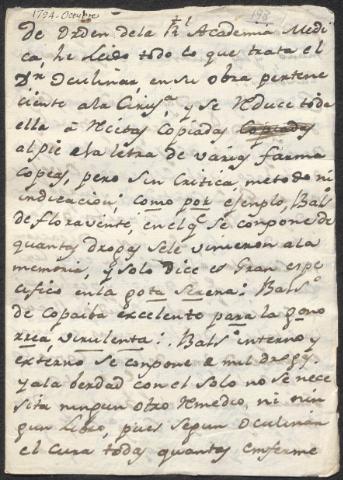 1794. Octubre
De Orden dela Rl. Academia Medi
ca, he Leido todo lo que trata el
Dr. Oculinar, en su obra pertene
ciente ala Cirusa. y se Reduce toda
ella á Recetas Copiadas Copiadas
alpie dela letra de varias farma
copeas, pero sin Critica, metodo ni
indicacion; como por ejemplo, Bals.o
de Floravente, en elq.e se conpone de
quantas drogas sele vinieron ala
memoria, y solo dice es Gran espe
cifico enla gota serena: Bals.o
de Copaiba excelente para la gono
rrea virulenta: Bals.o interno y
externo se conpone de mil drogas.
y ala berdad con el solo no se nece
sita ningun otro Remedio, ni nin
gun Libro, pues segun Oculinar
el cura todas quantas emferme